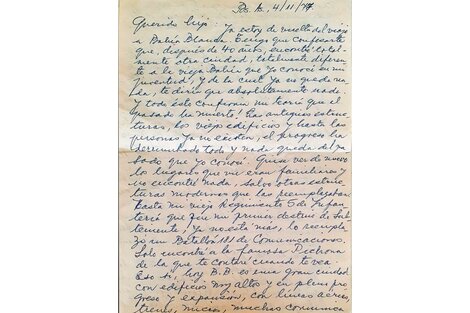 Bs. As, 4/11/77
Querido hijo: Ya estoy de vuelta del viaje
a Bahía Blanca. Tengo que confesarte
que, después de 40 años, encontré total-
mente otra ciudad, totalmente diferen-
te a la vieja Bahía que yo conocí en mi
juventud, y de la cual ya no queda na-
da, te diría que absolutamente nada.
Y todo ésto confirma mi teoría que el
pasado ha muerto! Las antiguas estruc-
turas, los viejos edificios y hasta las
personas ya no existen, el progreso ha
derrumbado todo y nada queda del pa-
sado que yo conocí. Quise ver de nuevo
los lugares que me eran familiares y
no encontré nada, salvo otras estruc-
turas modernas que las reemplazaban
hasta mi viejo Regimiento 5 de Infan-
tería que fue mi primer destino de Sub-
teniente, ya no está más, lo reempla-
zó un Batallón 181 de Comunicaciones.
Solo encontré a la famosa Pichona
de la que te contaré cuando te vea.
Eso sí, hoy B.B. es una gran ciudad
con edificios muy altos y en pleno pro
greso y expansión, con líneas aéreas,
trenes, micros, muchas comunica